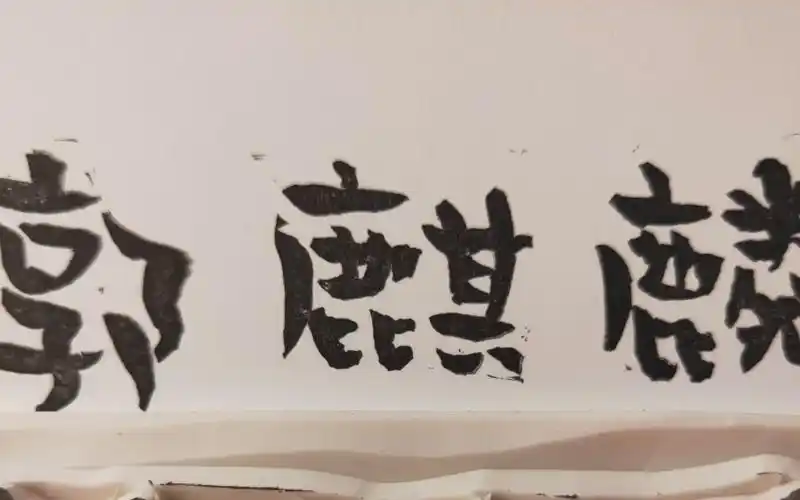 郭麒麟